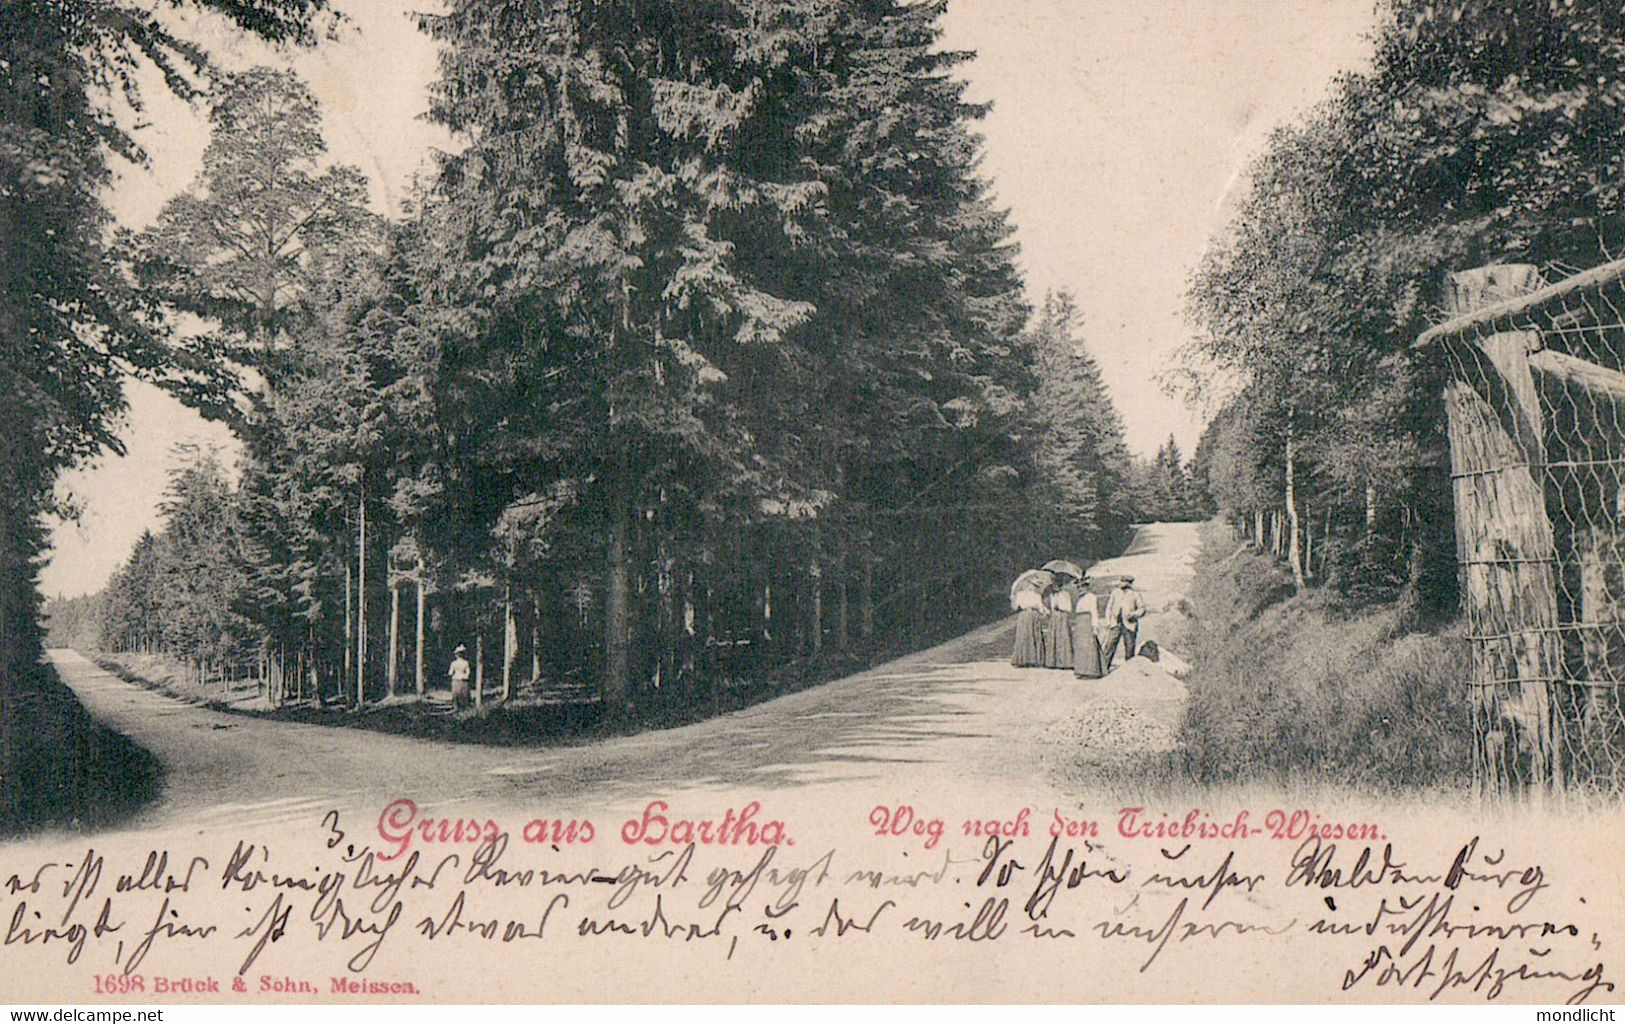 Gruss aus Hartha. Weg nach den Triebisch-Wiesen.
3.
es ist alles Königliches Revier gut gehegt wird. So schön unser Waldenburg
liegt, hier ist doch etwas andres, u. das will in unserm industrierei-
Fortsetzung.
1698 Brück & Sohn, Meissen.
www.delcampe.net
mondlicht